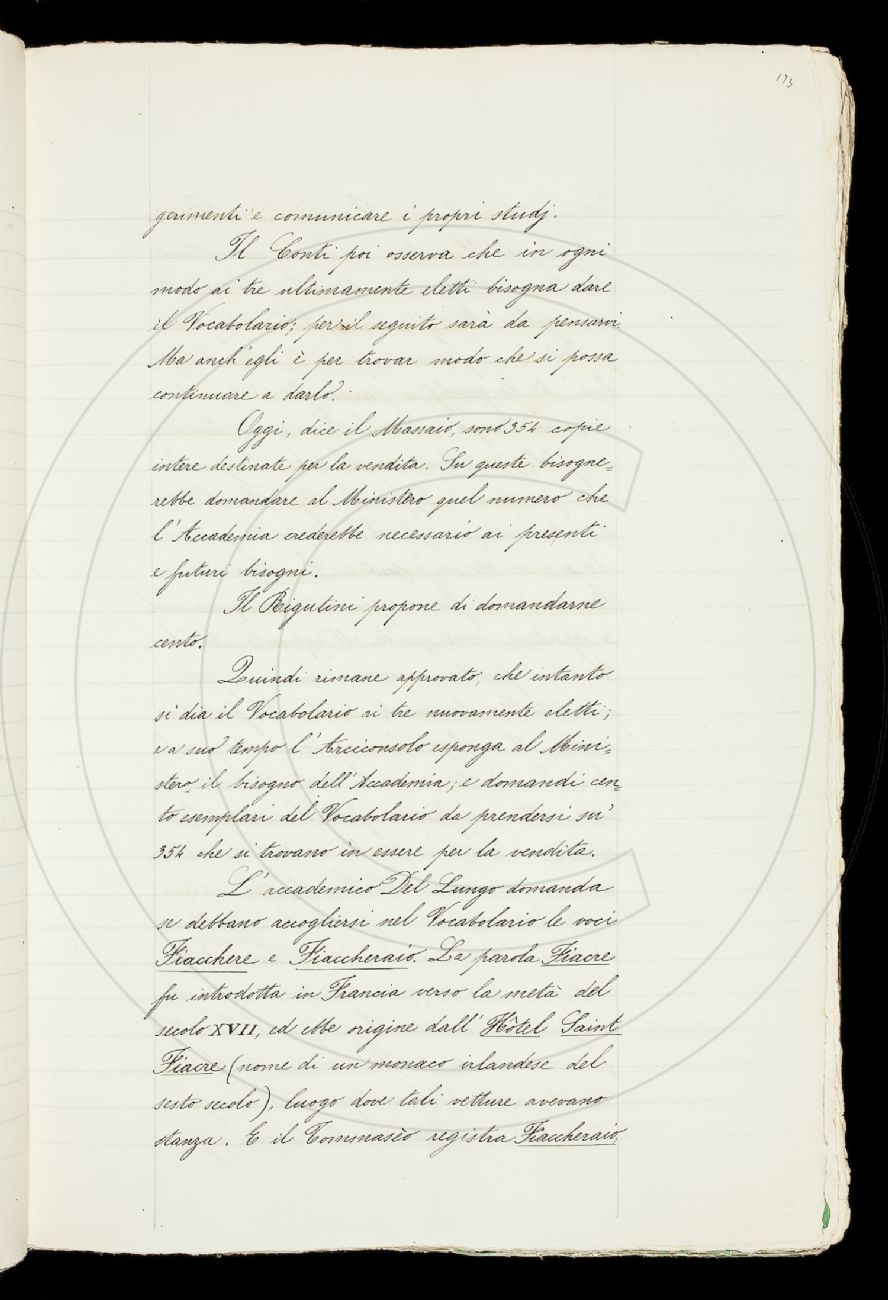 173
gerimenti e comunicare i propri studj.
Il Conti poi osserva che in ogni
modo ai tre ultimamente eletti bisogna dare
il Vocabolario; per il seguito sarà da pensarvi.
Ma anch'egli è per trovar modo che si possa
continuare a darlo.
Oggi, dice il Massaio, sono 354 copie
intere destinate per la vendita. Su queste bisogne=
rebbe domandare al Ministero quel numero che
l'Accademia crederebbe necessario ai presenti
e futuri bisogni.
Il Rigutini propone di domandarne
cento.
Quindi rimane approvato, che intanto
si dia il Vocabolario ai tre nuovamente eletti;
e a suo tempo l'Arciconsolo esponga al Mini=
stero il bisogno dell'Accademia; e domandi cen=
to esemplari del Vocabolario da prendersi su'
354 che si trovano in essere per la vendita.
L'accademico Del Lungo domanda
se debbano accogliersi nel Vocabolario le voci
Fiacchere e Fiaccheraio. La parola Fiacre
fu introdotta in Francia verso la metà del
secolo XVII, ed ebbe origine dall'Hôtel Saint
Fiacre (nome di un monaco irlandese del
sesto secolo), luogo dove tali vetture avevano
stanza. E il Tommasèo registra Fiaccheraio